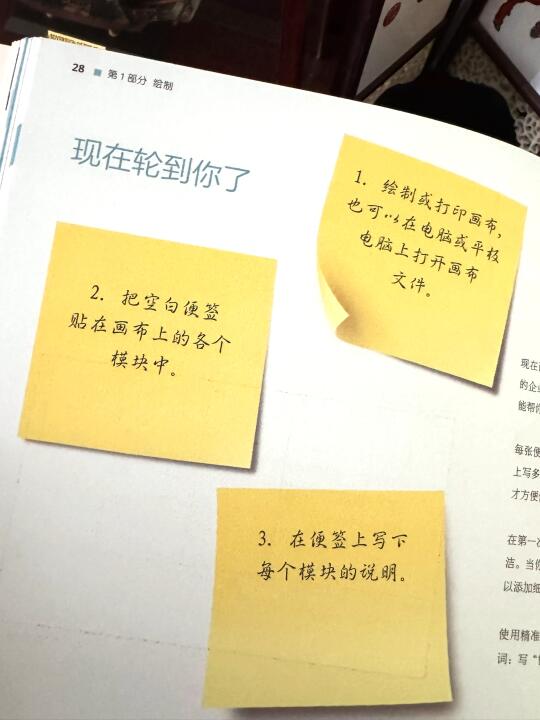 28 第1部分 绘制
现在轮到你了
1. 绘制或打印画布,
也可以在电脑或平板
电脑上打开画布
文件。
2. 把空白便签
贴在画布上的各个
模块中。
3. 在便签上写下
每个模块的说明。
现在
的企业
能帮你
每张便
上写多
才方便
在第一次
洁。当你
以添加细
使用精准
词:写“